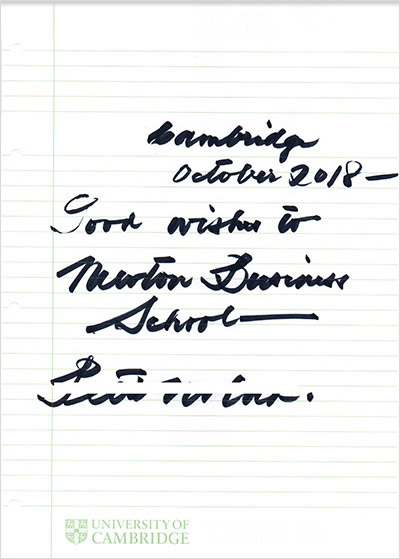 Cambridge
October 2018 —
Good wishes to
Newton Business
School —
UNIVERSITY OF
CAMBRIDGE